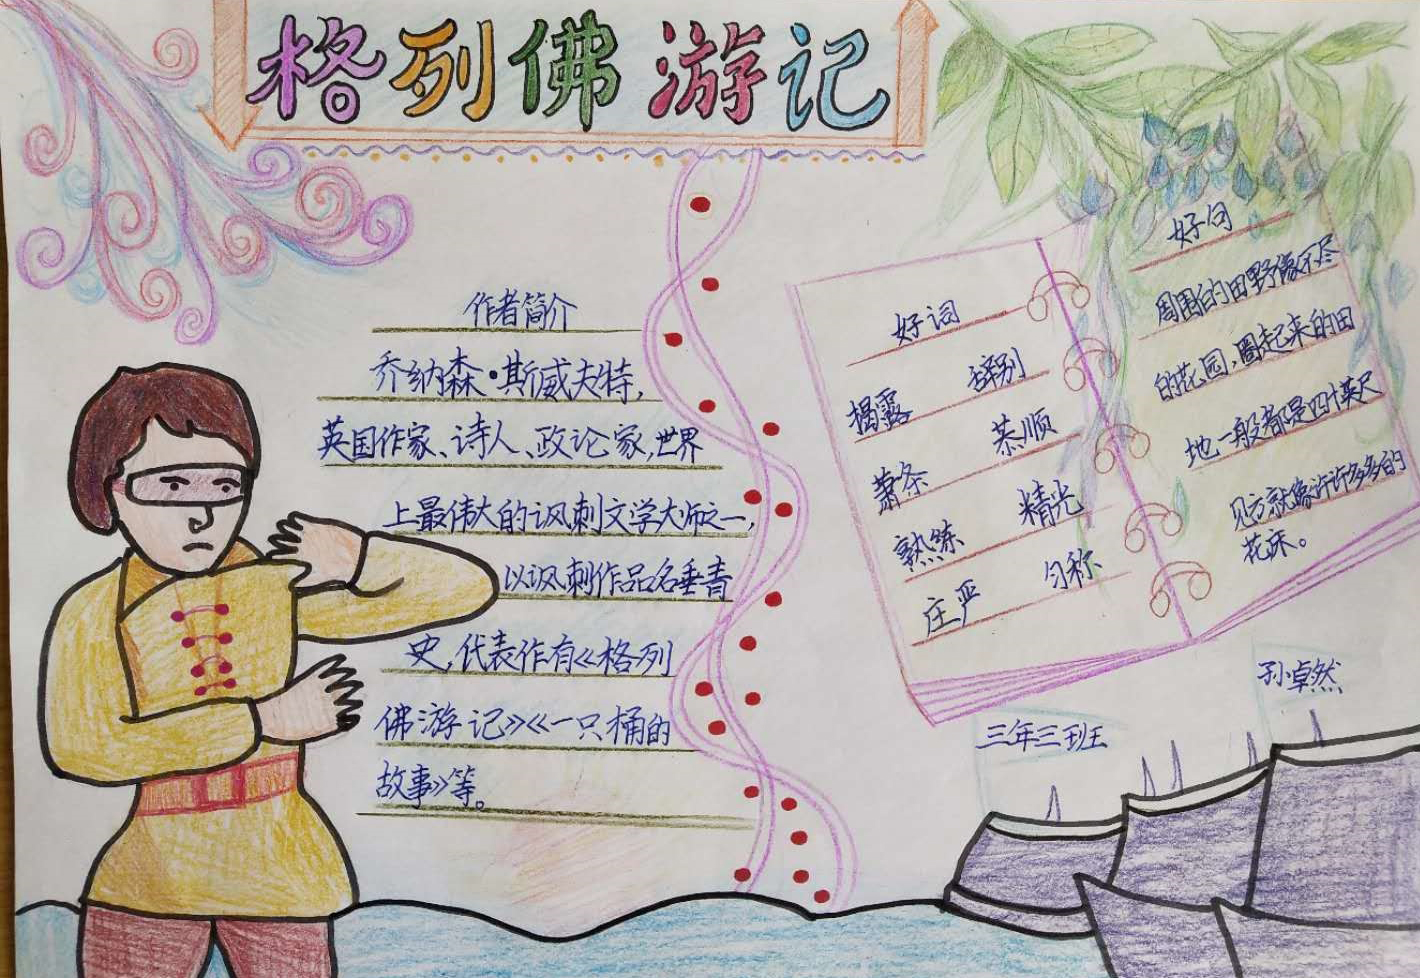 格列佛游记
作者简介
乔纳森·斯威夫特,
英国作家、诗人、政论家,世界
上最伟大的讽刺文学大师之一,
以讽刺作品名垂青
史,代表作有《格列
佛游记》《一只桶的
故事》等。
好词
揭露 辞别
萧条 恭顺
熟练 精光
庄严 匀称
好句
周围的田野像不尽
的花园,圈起来的田
地一般都是四十英尺
见方就像许许多多的
花床。
三年三班
孙卓然